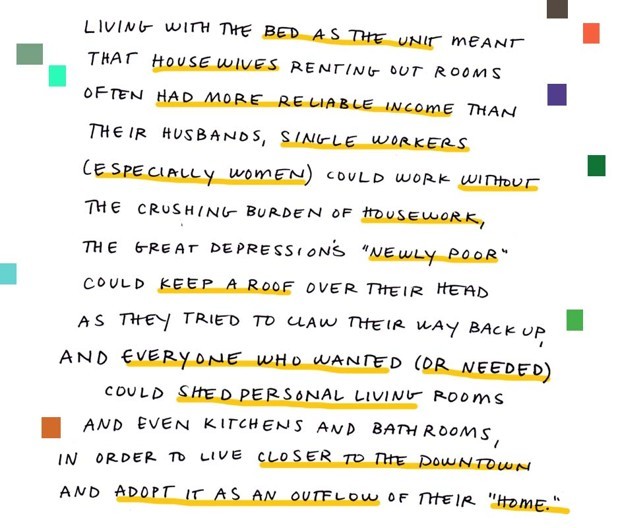 LIVING WITH THE BED AS THE UNIT MEANT
THAT HOUSEWIVES RENTING OUT ROOMS
OFTEN HAD MORE RELIABLE INCOME THAN
THEIR HUSBANDS, SINGLE WORKERS
(ESPECIALLY WOMEN) COULD WORK WITHOUT
THE CRUSHING BURDEN OF HOUSEWORK,
THE GREAT DEPRESSION'S "NEWLY POOR"
COULD KEEP A ROOF OVER THEIR HEAD
AS THEY TRIED TO CLAW THEIR WAY BACK UP,
AND EVERYONE WHO WANTED (OR NEEDED)
COULD SHED PERSONAL LIVING ROOMS
AND EVEN KITCHENS AND BATHROOMS,
IN ORDER TO LIVE CLOSER TO THE DOWNTOWN
AND ADOPT IT AS AN OUTFLOW OF THEIR "HOME."